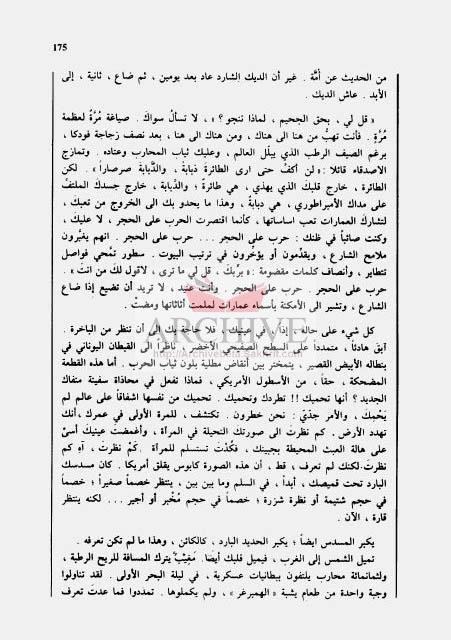 175
من الحديث عن أمّة . غير أن الديك الشارد عاد بعد يومين ، ثم ضاع ، ثانية ، إلى
الأبد . عاش الديك .
« قل لي ، بحق الجحيم ، لماذا ننجو ؟ » ، لا تسألُ سواكَ . صياغة مُرَّةٌ لعظمة
مُرَّةٍ . فأنت تهبُّ من هنا الى هناك ، ومن هناك الى هنا ، بعد نصف زجاجة فودكا ،
برغم الصيف الرطب الذي يبلّل العالم ، وعليك ثياب المحارب وعتاده . وتمازح
الاصدقاء قائلا : « لن أكفَّ حتى ارى الطائرةَ ذبابةً ، والدَّبابة صرصاراً » . لكن
الطائرة ، خارج قلبك الذي يهذي ، هي طائرةٌ ، والدَّبابة ، خارج جسدك الملتفّ
على مداك الأمبراطوري ، هي دبابةٌ ، وهذا ما يحدو بك الى الخروج من تعبك ،
لتشاركَ العمارات تعب اساساتها ، كأنما اقتصرت الحرب على الحجر ، لا عليك ،
وكنت صائباً في ظنك : حرب على الحجر ... حرب على الحجر . انهم يغيّرون
ملامح الشارع ، ويقدّمون أو يؤخّرون في ترتيب البيوت . سطور تمَّحي فواصل
تتطاير ، وأنصاف كلمات مقضومة : « بربِّكَ ، قل لي ما ترى ، لاقول لكَ من انت » .
حرب على الحجر . حرب على الحجر . وأنت عنيد ، لا تريد أن تضيع إذا ضاع
الشارع ، وتشير الى الأمكنة بأسماء عمارات لملمت أثاثاتها ومضتْ .
كل شيء على حاله ، إذاً ، في عينيك . فلا حاجة بك الى أن تنظر من الباخرة .
أبقَ هادئاً ، متمدداً على السطح الصفيحي الأخضر ، ناظراً الى القبطان اليوناني في
بنطاله الأبيض القصير ، يتمختر بين أنقاض مطلية بلون ثياب الحرب . أما هذه القطعة
المضحكة ، حقاً ، من الأسطول الأمريكي ، فماذا تفعل في محاذاة سفينة منفاك
الجديد ؟ أنها تحميك !! تطردك وتحميك . تحميك من نفسها اشفاقاً على عالم لم
يَحْمِكَ ، والأمر جدّيٌ : نحن خطرون . تكتشف ، للمرة الأولى في عمرك ،أنك
تهدد الأرض . كم نظرت الى صورتك النحيلة في المرآة ، وأغمضت عينيكَ أسىً
على هالة العبث المحيطة بجبينك ، فكُدْتَ تستسلم للمرآة . كمْ نظرتَ ، آه كم
نظرت.لكنك لم تعرف ، قط ، أن هذه الصورة كابوس يقلق أمريكا . كان مسدسك
البارد تحت قميصك ، أبداً ، في السلم وما بين بين ، ينتظر خصماً صغيراً ؛ خصماً
في حجم شتيمة أو نظرة شزرة ؛ خصماً في حجم مُخْبر أو أجير ... لكنه ينتظر
قارة ، الآن .
يكبر المسدس ايضاً ؛ يكبر الحديد البارد ، كالكائن ، وهذا ما لم تكن تعرفه .
تميل الشمس إلى الغرب ، فيميل قلبك أيضاً . مَغِيْبٌ يترك المسافة للريح الرطبة ،
ولثمانمائة محارب يلتفون ببطانيات عسكرية ، في ليلة البحر الأولى . لقد تناولوا
وجبة واحدة من طعام يشبة « الهمبرغر » ، ولم يكملوها . تمددوا فما عدتَ تعرف
ARCHIVE
http://Archivebeta.Sakhrit.com